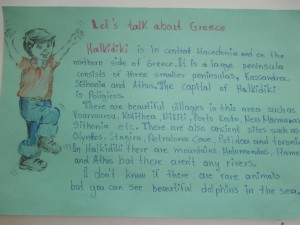 Let's talk about Greece
Halkidiki is in central Macedonia and on the
northern side of Greece. It is a large peninsula
consists of three smaller peninsulas, Kassandra,
Sithonia and Athos. The capital of Halkidiki
is Poligiros.
There are beautiful villages in this area such as
Vourvourou, Kalithea, Nikiti, Porto Koufo, Neos Marmaras
Sithonia etc. There are also ancient sites such as
Olynthos, Stagira, Petralona Cave, Potidea and
In Halkidiki there are mountains Holomondas,
and Athos but there aren't any rivers.
I don't know if there are rare animals
but you can see beautiful dolphins in the sea.